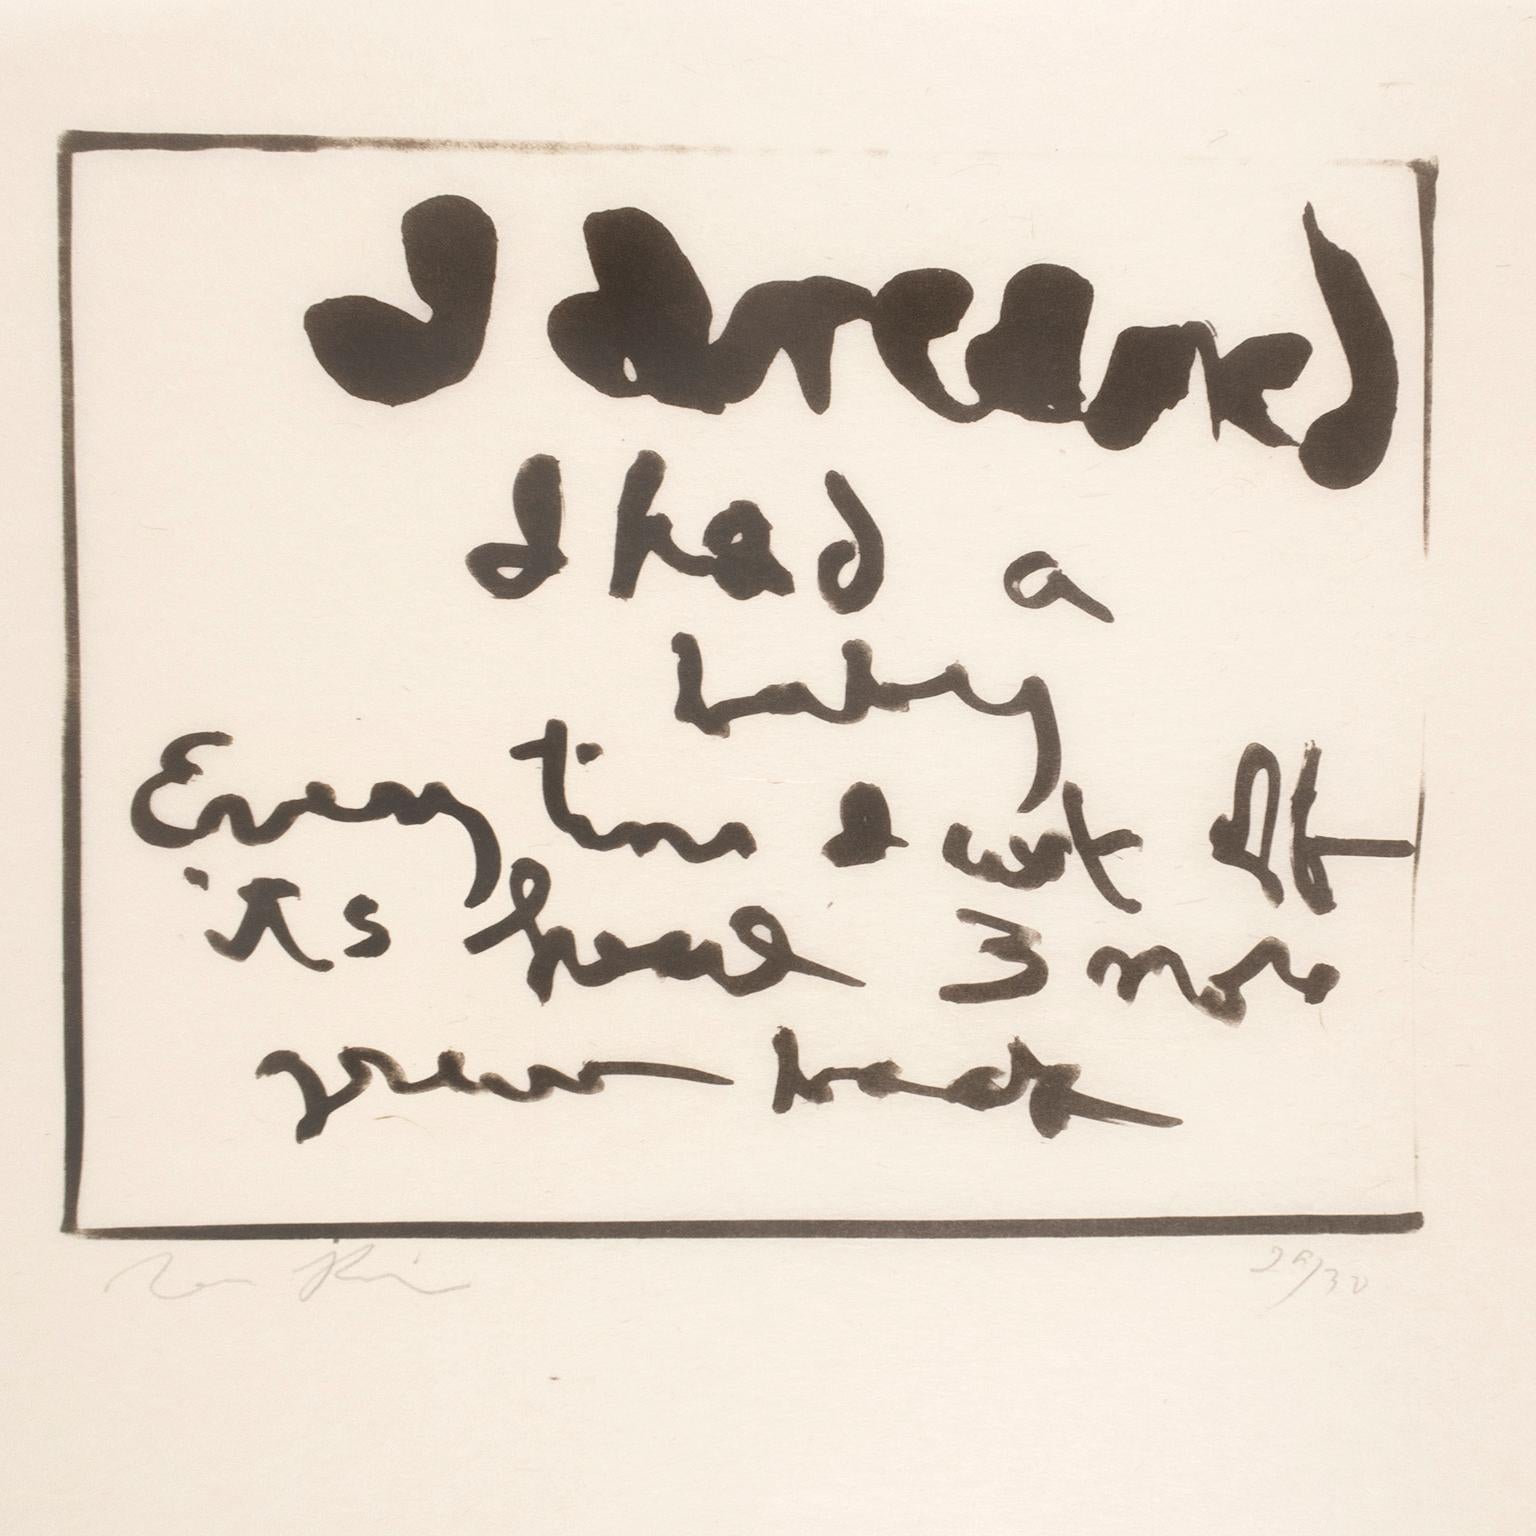 I dreamed
I had a
baby
Every time I cut off
its head 3 more
grew back
29/30